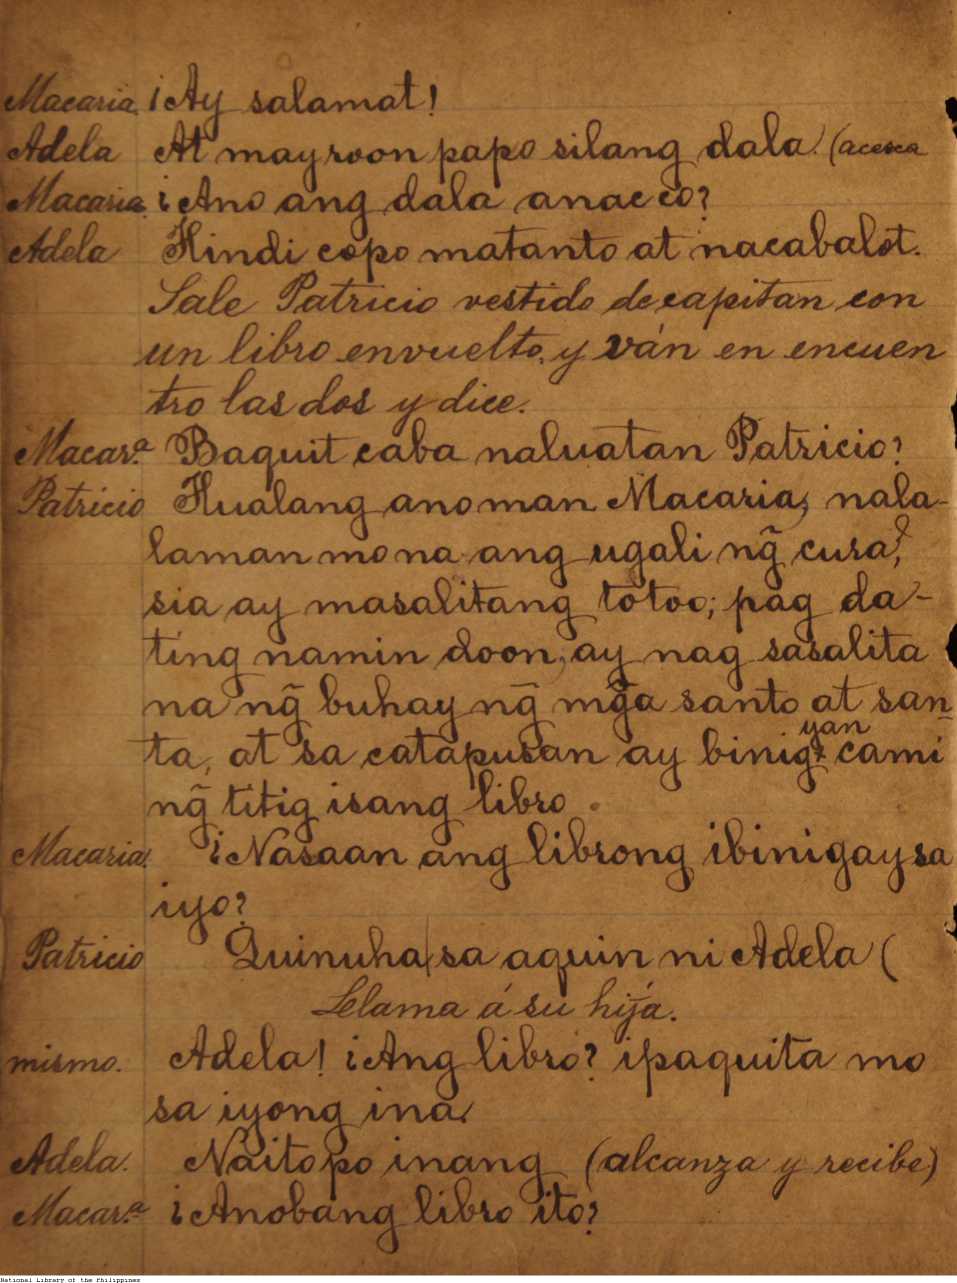 Macaria. ¡Ay salamat!
Adela At mayroon papo silang dala. (acesca
Macaria. ¿Ano ang dala anac co?
Adela Hindi copo matanto at nacabalot.
Sale Patricio vestido de capitan con
un libro envuelto, y ván en encuen
tro las dos y dice.
Macar.ª Baquit caba naluatan Patricio?
Patricio Hualang ano man Macaria, nala-
laman mo na ang ugali ng̃ cura,
sia ay masalitang totoo; pag da-
ting namin doon, ay nag sasalita
na ng̃ buhay ng̃ mg̃a santo at san-
ta, at sa catapusan ay binigyan cami
ng̃ titig isang libro.
Macaria. ¿Nasaan ang librong ibinigay sa
iyo?
Patricio Quinuha sa aquin ni Adela (
Llama á su hija.
mismo. Adela! ¿Ang libro? ipaquita mo
sa iyong ina.
Adela. Naito po inang (alcanza y recibe)
Macar.ª ¿Anobang libro ito?
National Library of the Philippines